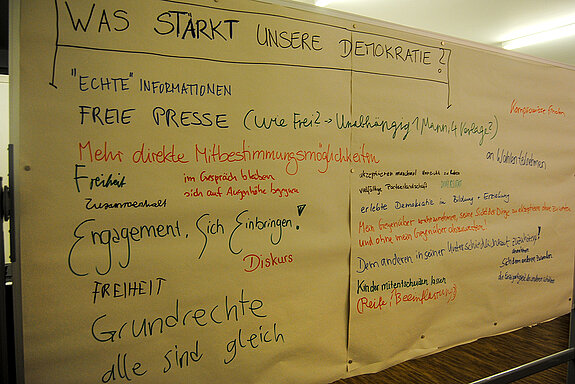 WAS STÄRKT UNSERE DEMOKRATIE?
"ECHTE" INFORMATIONEN
FREIE PRESSE (Wie Frei? → Unabhängig 1 Mann, 4 Verlage?)
Mehr direkte Mitbestimmungsmöglichkeiten
Freiheit
im Gespräch bleiben
sich auf Augenhöhe begegnen
Zusammenhalt
Engagement, Sich Einbringen!
Diskurs
FREIHEIT
Grundrechte
alle sind gleich
Kompromisse finden
an Wahlen teilnehmen
akzeptieren manchmal Unrecht zu haben
vielfältige Parteienlandschaft
erlebte Demokratie in Bildung + Erziehung
Mein Gegenüber wahrzunehmen, seine Sicht der Dinge zu akzeptieren ohne
und ohne mein Gegenüber abzuwerten!
Dem anderen in seiner Unterschiedlichkeit zuhören!
Kinder mitentscheiden lassen
(Reife / Beeinflussung)